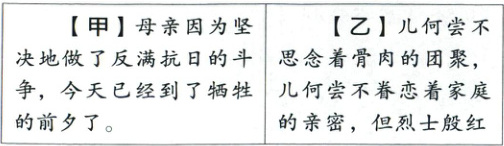 【甲】母亲因为坚
决地做了反满抗日的斗
争，今天已经到了牺牲
的前夕了。
【乙】儿何尝不
思念着骨肉的团聚，
儿何尝不眷恋着家庭
的亲密，但烈士殷红